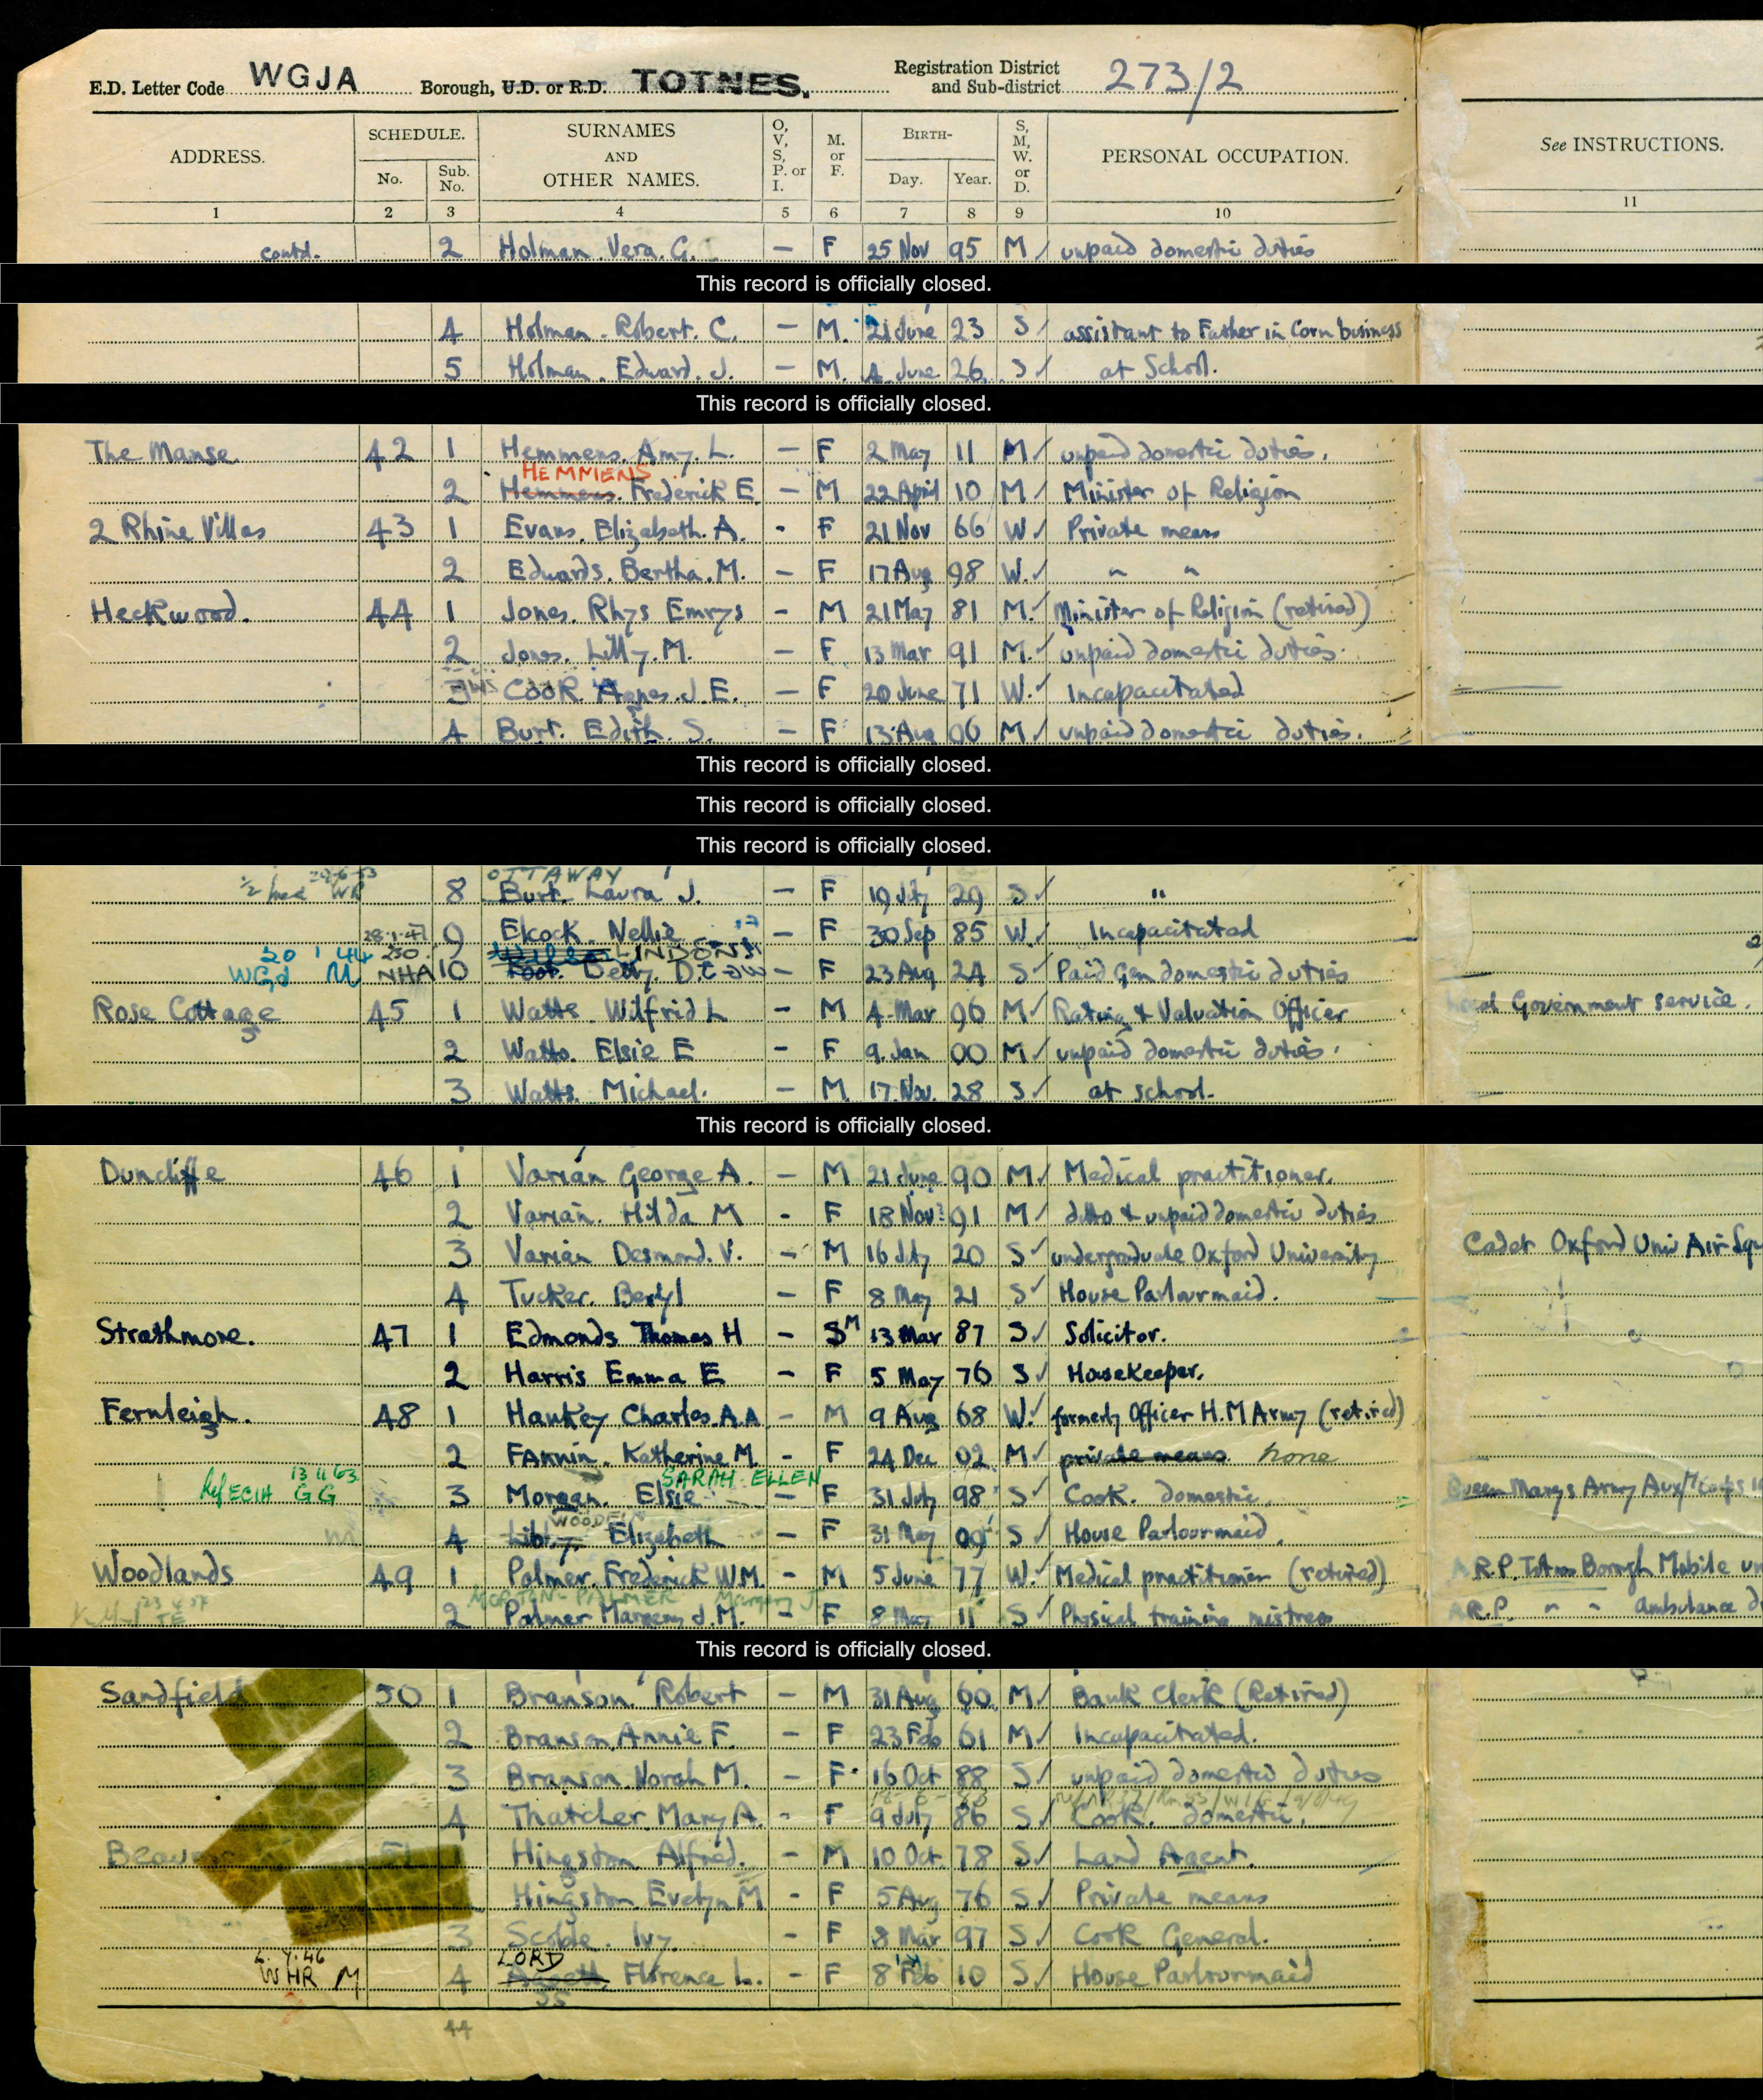 E.D. Letter Code WGJA Borough, U.D. or R.D. TOTNES. Registration District and Sub-district 273/2
ADDRESS. SCHEDULE. No. Sub. No. SURNAMES AND OTHER NAMES. O, V, S, P. or I. M. or F. BIRTH- Day. Year. S, M, W. or D. PERSONAL OCCUPATION. See INSTRUCTIONS.
1 2 3 4 5 6 7 8 9 10 11
contd. 2 Holman. Vera. G. — F 25 Nov 95 M ✓ unpaid domestic duties
This record is officially closed.
4 Holman. Robert. C. — M. 21 June 23 S ✓ assistant to Father in Corn business
5 Holman. Edward. J. — M. 4 June 26 S ✓ at School.
This record is officially closed.
The Manse 42 1 Hemmens. Amy. L. — F 2 May 11 M ✓ unpaid domestic duties.
HEMMENS
2 Hemmens. Frederick E. — M 22 April 10 M ✓ Minister of Religion
2 Rhine Villas 43 1 Evans. Elizabeth. A. - F 21 Nov 66 W ✓ Private means
2 Edwards. Bertha. M. — F 17 Aug 98 W. ✓ " "
Heckwood. 44 1 Jones. Rhys Emrys - M 21 May 81 M. ✓ Minister of Religion (retired)
2 Jones. Lilly. M. — F 13 Mar 91 M. ✓ unpaid domestic duties.
3 Cook. Agnes. J. E. — F 20 June 71 W. ✓ Incapacitated
4 Burt. Edith. S. — F 13 Aug 06 M ✓ unpaid domestic duties.
This record is officially closed.
This record is officially closed.
This record is officially closed.
OTTAWAY
8 Burt. Laura J. — F 19 July 29 S ✓ "
28.1.47 9 Elcock. Nellie — F 30 Sep 85 W. Incapacitated
20 1 44 250. LINDON
WGd M NHA 10 Root. Betty. D. — F 23 Aug 24 S ✓ Paid Gen domestic duties
Rose Cottage 45 1 Watts. Wilfrid L — M 4 Mar 96 M ✓ Rating & Valuation Officer Local Government service.
2 Watts. Elsie E - F 9. Jan 00 M ✓ unpaid domestic duties.
3 Watts. Michael. — M 17 Nov. 28 S ✓ at school.
This record is officially closed.
Duncliffe 46 1 Varian George A. — M 21 June 90 M ✓ Medical practitioner.
2 Varian. Hilda M - F 18 Nov 91 M ✓ ditto & unpaid domestic duties
3 Varian Desmond. V. — M 16 July 20 S ✓ undergraduate Oxford University Cadet Oxford Univ Air Squ
4 Tucker. Beryl — F 8 May 21 S ✓ House Parlourmaid.
Strathmore. 47 1 Edmonds Thomas H — S M 13 Mar 87 S ✓ Solicitor.
2 Harris Emma E — F 5 May 76 S ✓ Housekeeper.
Fernleigh. 48 1 Hankey Charles. A. A — M 9 Aug 68 W. ✓ formerly Officer H.M Army (retired)
2 Fannin. Katherine M. - F 24 Dec 02 M ✓ private means none
13 11 63 SARAH ELLEN
Ref ECIH GG 3 Morgan. Elsie — F 31 July 98 S ✓ Cook. domestic. Queen Marys Army Aux
4 Elizabeth — F 31 May 09 S ✓ House Parlourmaid.
Woodlands 49 1 Palmer. Frederick W.M. - M 5 June 77 W. ✓ Medical practitioner (retired) A.R.P. Totnes Borough Mobile un
MORTON-PALMER Margery J.
2 Palmer Margery J. M. — F 8 May 11 S ✓ Physical training mistress A.R.P. " " ambulance d
This record is officially closed.
Sandfield 50 1 Branson. Robert — M 31 Aug 60 M ✓ Bank Clerk (Retired)
2 Branson. Annie F. — F 23 Feb 61 M ✓ Incapacitated.
3 Branson Norah M. — F. 16 Oct 88 S ✓ unpaid domestic duties
4 Thatcher. Mary A. - F 9 July 86 S ✓ Cook. domestic.
Hingston Alfred. — M 10 Oct. 78 S ✓ Land Agent.
Hingston Evelyn M - F 5 Aug 76 S ✓ Private means
3 Scoble. Ivy. — F 8 Mar 97 S ✓ Cook General.
LORD
WHR M 4 Florence L. — F 8 Feb 10 S ✓ House Parlourmaid
44